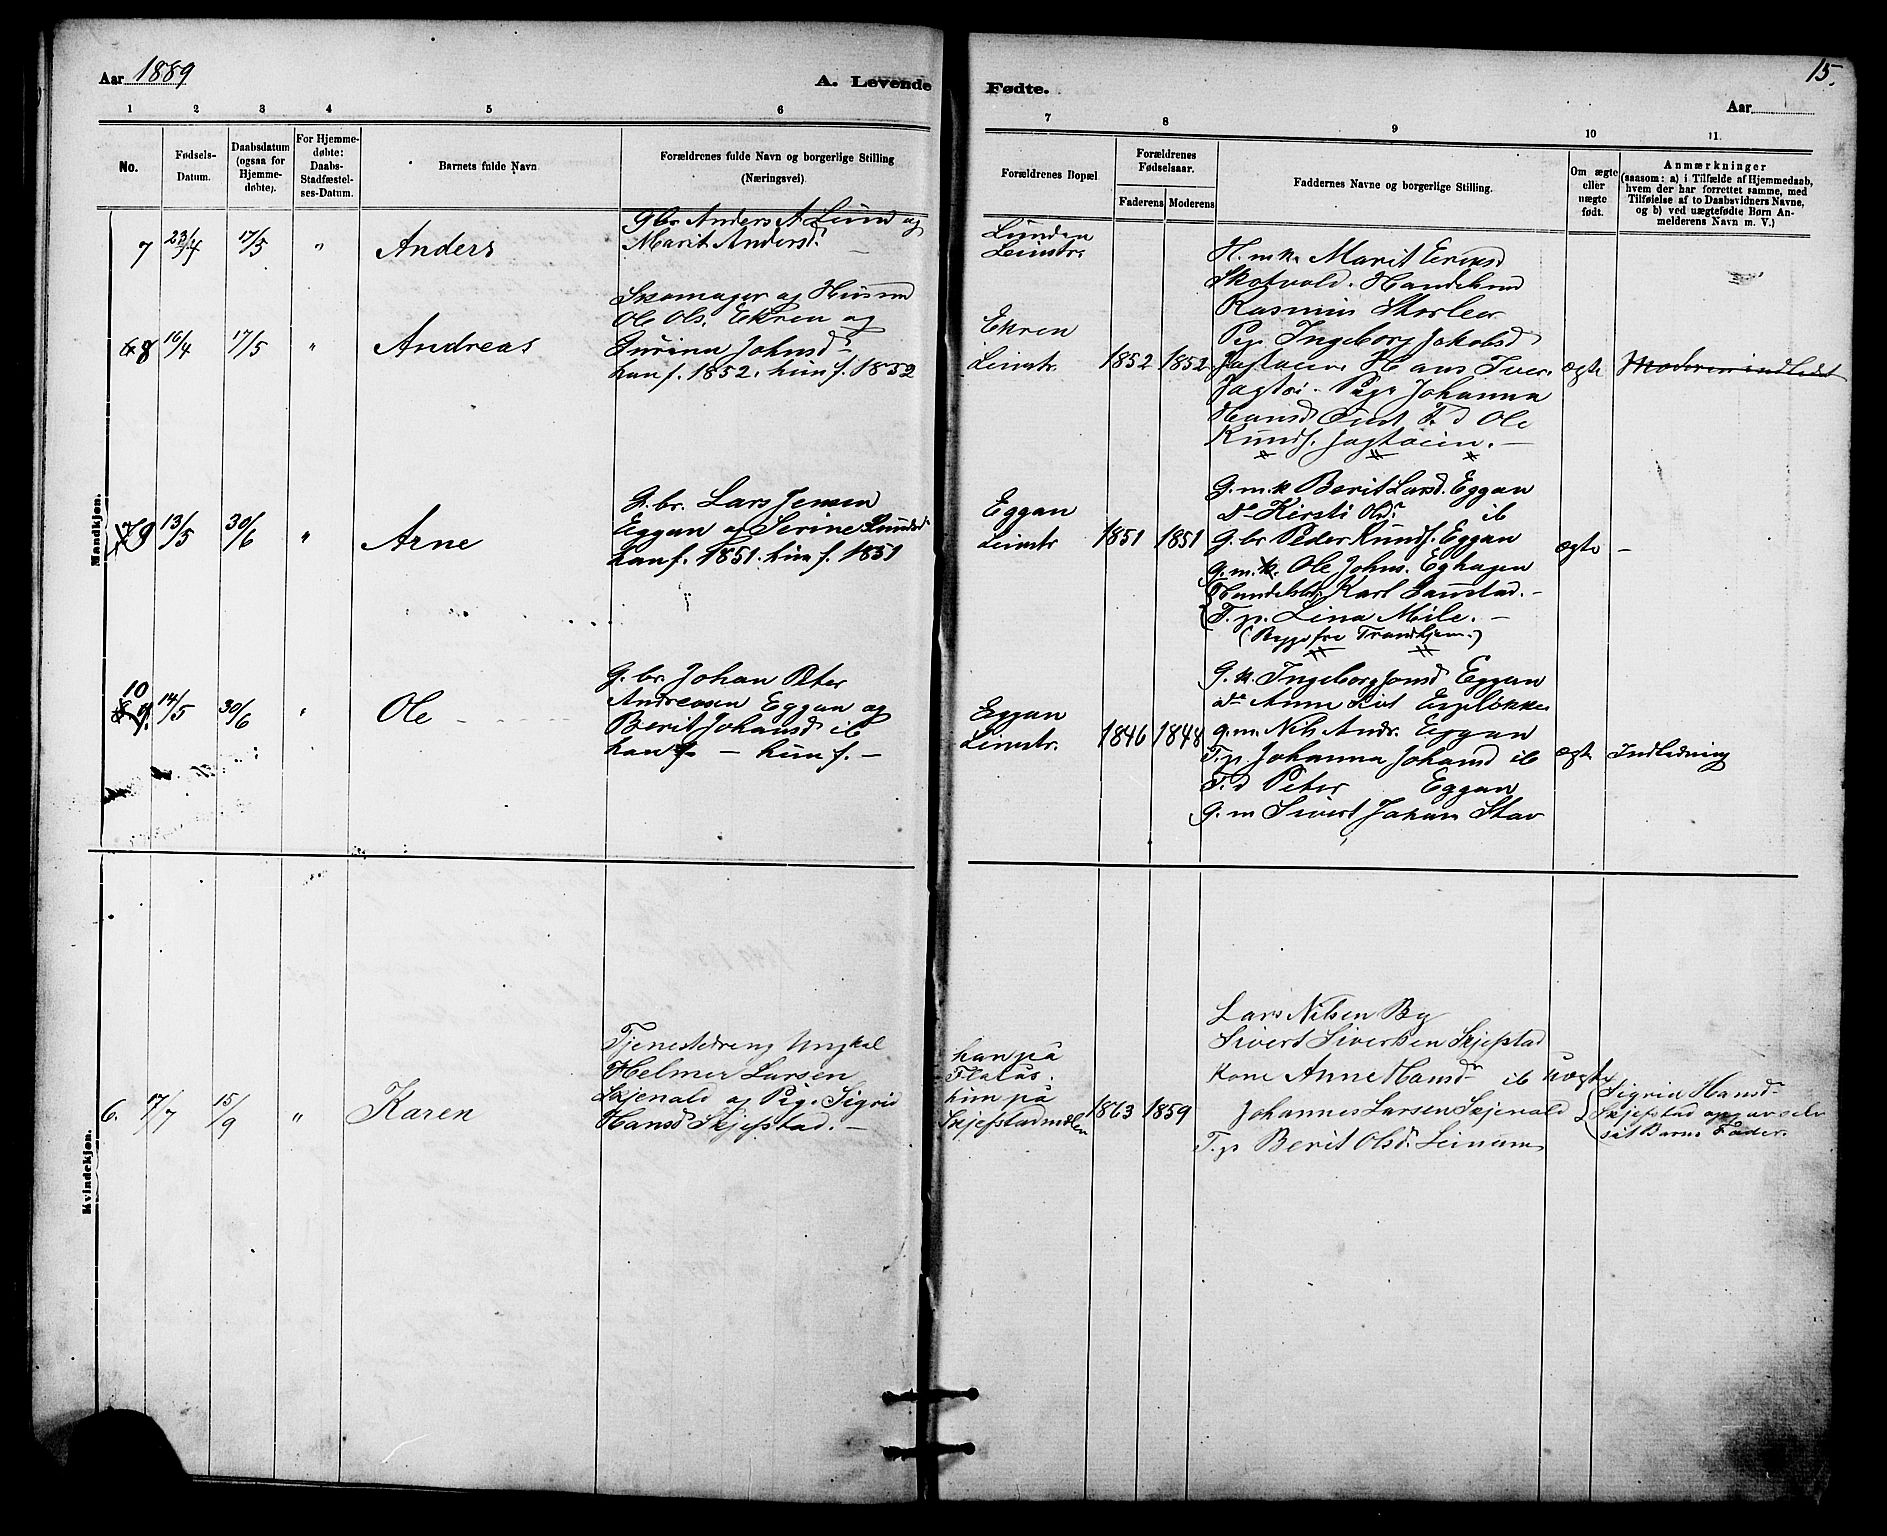 Aar 1889
A. Levende
Fødte.
15.
Aar
1 2 3 4 5 6 7 8 9 10 11.
No.
Fødsels-
Datum.
Daabsdatum
(ogsaa for
Hjemme-
døbte).
For Hjemme-
døbte:
Daabs-
Stadfæstel-
ses-Datum.
Barnets fulde Navn
Forældrenes fulde Navn og borgerlige Stilling
(Næringsvei).
Forældrenes Bopæl
Forældrenes
Fødselsaar.
Faderens Moderens
Faddernes Navne og borgerlige Stilling.
Om ægte
eller
uægte
født.
Anmærkninger
(saasom: a) i Tilfælde af Hjemmedaab,
hvem der har forrettet samme, med
Tilføielse af to Daabsvidners Navne,
og b) ved uægtefødte Børn An-
melderens Navn m. V.)
Mandkjøn.
7 23/4 17/5 " Anders
Gbr Anders A Leinn og
Marit Andersd.
Lunden
Leinstr.
8 16/4 17/5 " Andreas
Skomager og Husmd
Ole Ols. Ekren og
Gurina Johnsd
han f. 1852. hun f. 1852
Ekren
Leinstr. 1852 1852
H. m. k. Marit Eriksd
Skotvold. Handelsmd
Rasmus Storleer
Pg. Ingeborg Jakobsd
Jagtøien Hans Iver.
Jagtøi. Pige Johanna
Hansd Ust T. d Ole
Knuds. Jagtøien.
ægte
Moderen indledet
9 13/5 30/6 " Arne
G. br. Lars Jensen
Eggan og Serine Knudsd
han f. 1851. hun f. 1851
Eggan
Leinstr 1851 1851
G. m. k Berit Larsd. Eggan
do Kirsti Olsdr ib
G. br Peder Knuds. Eggan
g. m. k. Ole Johns. Eghagen
Handelsb. Karl Saustad.
T. p. Lina Mile.
(Begge fra Trondhjem.)
ægte –
10 14/5 30/6 " Ole
G. br. Johan Peter
Andreasen Eggan og
Berit Johansd ib
han f. – hun f. –
Eggan
Leinstr. 1846 1848
G. k. Ingeborg Jonsd Eggan
do Anne Espeløkken
g. m. Nils Andr. Eggan
T. p Johanna Johansd ib
T. d Peter Eggan
g. m Sivert Johan Stav
ægte
Indledning
Kvindekjøn.
6. 17/7 15/9 " Karen
Tjenestedreng Ungkal
Helmer Larsen
Skjevald og Pig. Sigrid
Hansd Skjefstad. –
han på
Flatås.
hun på
Skjefstadmølen 1863 1859
Lars Nilsen By
Sivert Sivertsen Skjefstad
Kone Anne Hansdr ib
Johannes Larsen Skjevald
T. p Berit Olsd. Leinum
uægte
Sigrid Hansd
Skjefstad opgav selv
sit Barns Fader.